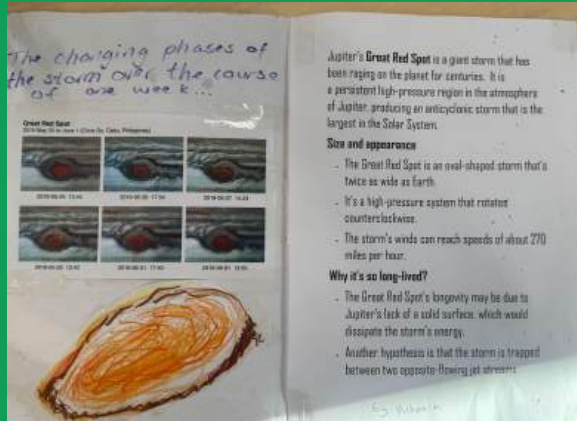 The changing phases of
the storm over the course
of one week...
Great Red Spot
Jupiter's Great Red Spot is a giant storm that has
been raging on the planet for centuries. It is
a persistent high-pressure region in the atmosphere
of Jupiter, producing an anticyclonic storm that is the
largest in the Solar System.
Size and appearance
- The Great Red Spot is an oval-shaped storm that's
twice as wide as Earth.
- It's a high-pressure system that rotated
counterclockwise.
- The storm's winds can reach speeds of about 270
miles per hour.
Why it's so long-lived?
- The Great Red Spot's longevity may be due to
Jupiter's lack of a solid surface, which would
dissipate the storm's energy.
- Another hypothesis is that the storm is trapped
between two opposite-flowing jet streams.